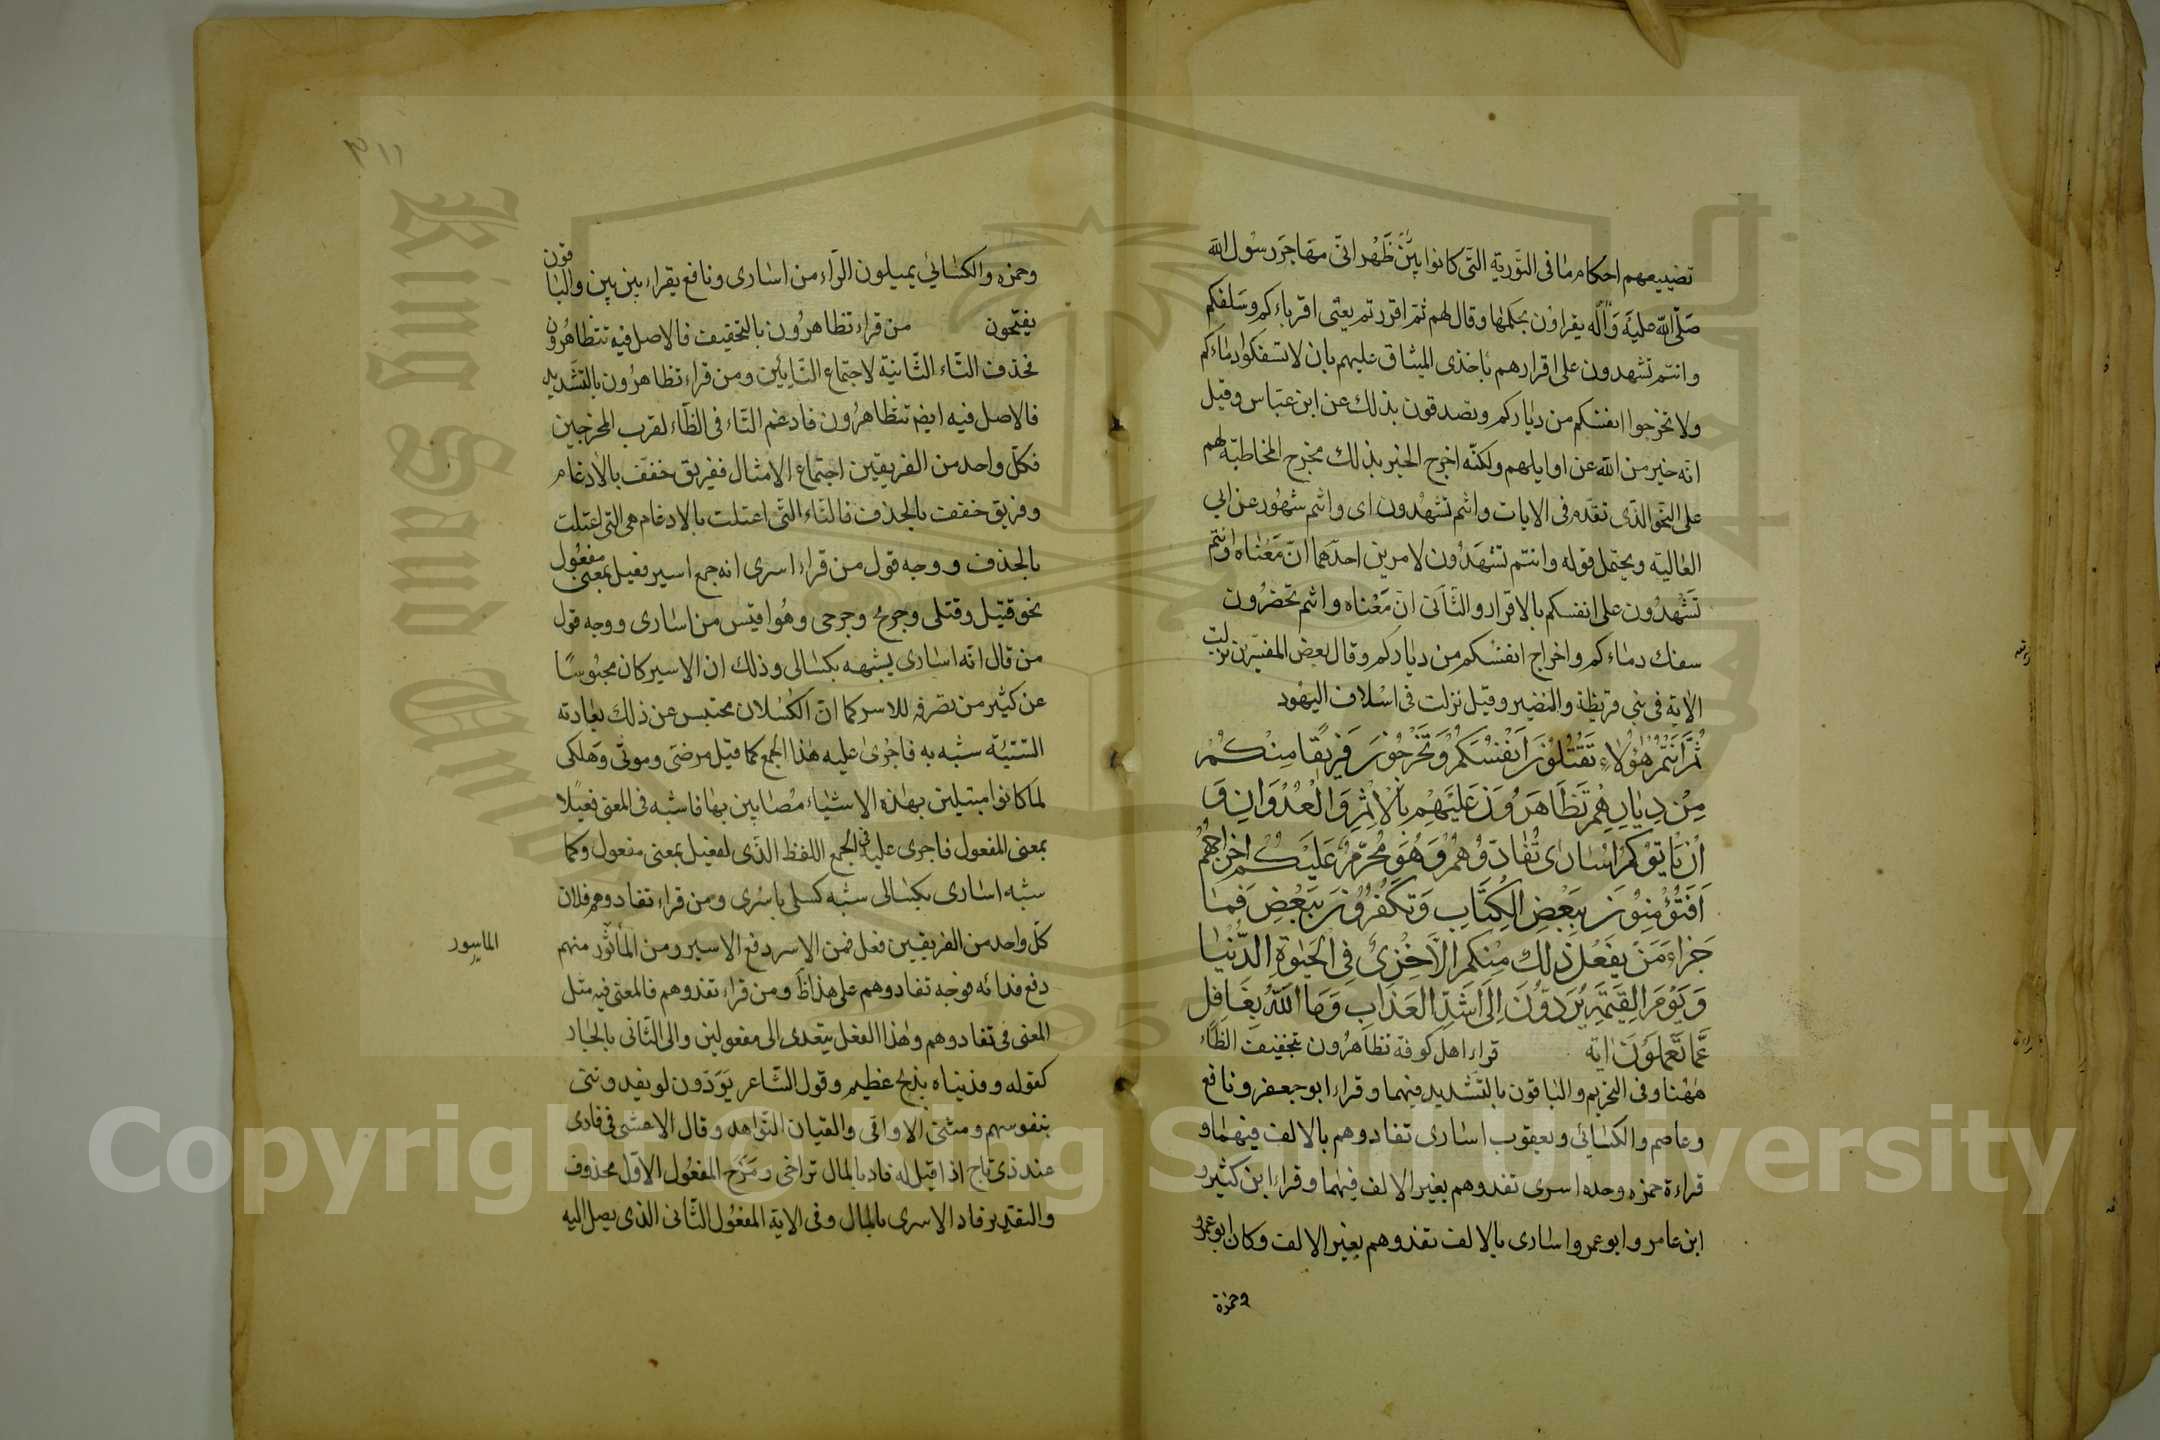 تضييعهم احكام ما فى التورية التى كانوا بين ظهرانى مهاجر رسول الله
صلى الله عليه وآله يقراون بحكمها وقال لهم ثم اقررتم يعنى اقرباءكم وسلفكم
وانتم تشهدون على اقرارهم باخذى الميثاق عليهم بان لا تسفكوا دماءكم
ولا تخرجوا انفسكم من دياركم وتصدقون بذلك عن ابن عباس وقيل
انه خبر من الله عن اوايلهم ولكنه اخرج الخبر بذلك مخرج المخاطبة لهم
على النحو الذى تقدم فى الايات وانتم تشهدون اى وانتم شهود عن ابى
العالية ويحتمل قوله وانتم تشهدون لامرين احدهما ان معناه وانتم
تشهدون على انفسكم بالاقرار والثانى ان معناه وانتم تحضرون
سفك دماءكم واخراج انفسكم من دياركم وقال بعض المفسرين نزلت
الاية فى بنى قريظة والنضير وقيل نزلت فى اسلاف اليهود
ثم انتم هؤلاء تقتلون انفسكم وتخرجون فريقا منكم
من ديارهم تظاهرون عليهم بالاثم والعدوان و
ان ياتوكم اسارى تفادوهم وهو محرم عليكم اخراجهم
افتؤمنون ببعض الكتاب وتكفرون ببعض فما
جزاء من يفعل ذلك منكم الا خزى فى الحيوة الدنيا
ويوم القيمة يردون الى اشد العذاب وما الله بغافل
عما تعملون اية قراء اهل كوفة تظاهرون بتخفيف الظاء
ههنا وفى التحريم والباقون بالتشديد فيهما وقراء ابو جعفر ونافع
وعاصم والكسائي ويعقوب اسارى تفادوهم بالالف فيهما و
قراءة حمزه وحده اسرى تفدوهم بغير الالف فيهما وقراء ابن كثير و
ابن عامر وابو عمرو اسارى بالالف تفدوهم بغير الالف وكان ابو عمرو
وحمزة
٣١١
وحمزه والكسائي يميلون الراء من اسارى ونافع يقراء بين بين والباقون
يفتحون من قراء تظاهرون بالتخفيف فالاصل فيه تتظاهرون
فحذف التاء الثانية لاجتماع التائين ومن قراء تظاهرون بالتشديد
فالاصل فيه ايضا تتظاهرون فادغم التاء فى الظاء لقرب المخرجين
فكل واحد من الفريقين اجتماع الامثال ففريق خفف بالادغام
وفريق خفف بالحذف فالتاء التى اعتلت بالادغام هى التى اعتلت
بالحذف ووجه قول من قراء اسرى انه جمع اسير فعيل بمعنى مفعول
نحو قتيل وقتلى وجريح وجرحى وهو اقيس من اسارى ووجه قول
من قال انه اسارى يشبهه بكسالى وذلك ان الاسير كان محبوسا
عن كثير من تصرفه للاسر كما ان الكسلان محتبس عن ذلك بعادته
السيئة شبه به فاجرى عليه هذا الجمع كما قيل مرضى وموتى وهلكى
لما كانوا مبتلين بهذه الاشياء مصابين بها فاشبه فى المعنى فعيلا
بمعنى المفعول فاجرى عليه فى الجمع اللفظ الذى لفعيل بمعنى مفعول وكما
شبه اسارى بكسالى شبه كسلى باسرى ومن قراء تفادوهم فلان
كل واحد من الفريقين فعل فمن الاسر دفع الاسير ومن المأثور منهم
الماسور
دفع فدائه فوجه تفادوهم على هذا ومن قراء تفدوهم فالمعنى فيه مثل
المعنى فى تفادوهم وهذا الفعل يتعدى الى مفعولين والى الثانى بالجار
كقوله وفديناه بذبح عظيم وقول الشاعر يودون لو يفدوننى
بنفوسهم ومثنى الاواقى والقيان النواهد وقال الاعشى فى فادى
عند ذى تاج اذا قيل له فاد بالمال تراخى ومزح المفعول الاول محذوف
والتقدير فاد الاسرى بالمال وفى الاية المفعول الثانى الذى يصل اليه
King Saud University
Copyright © King Saud University